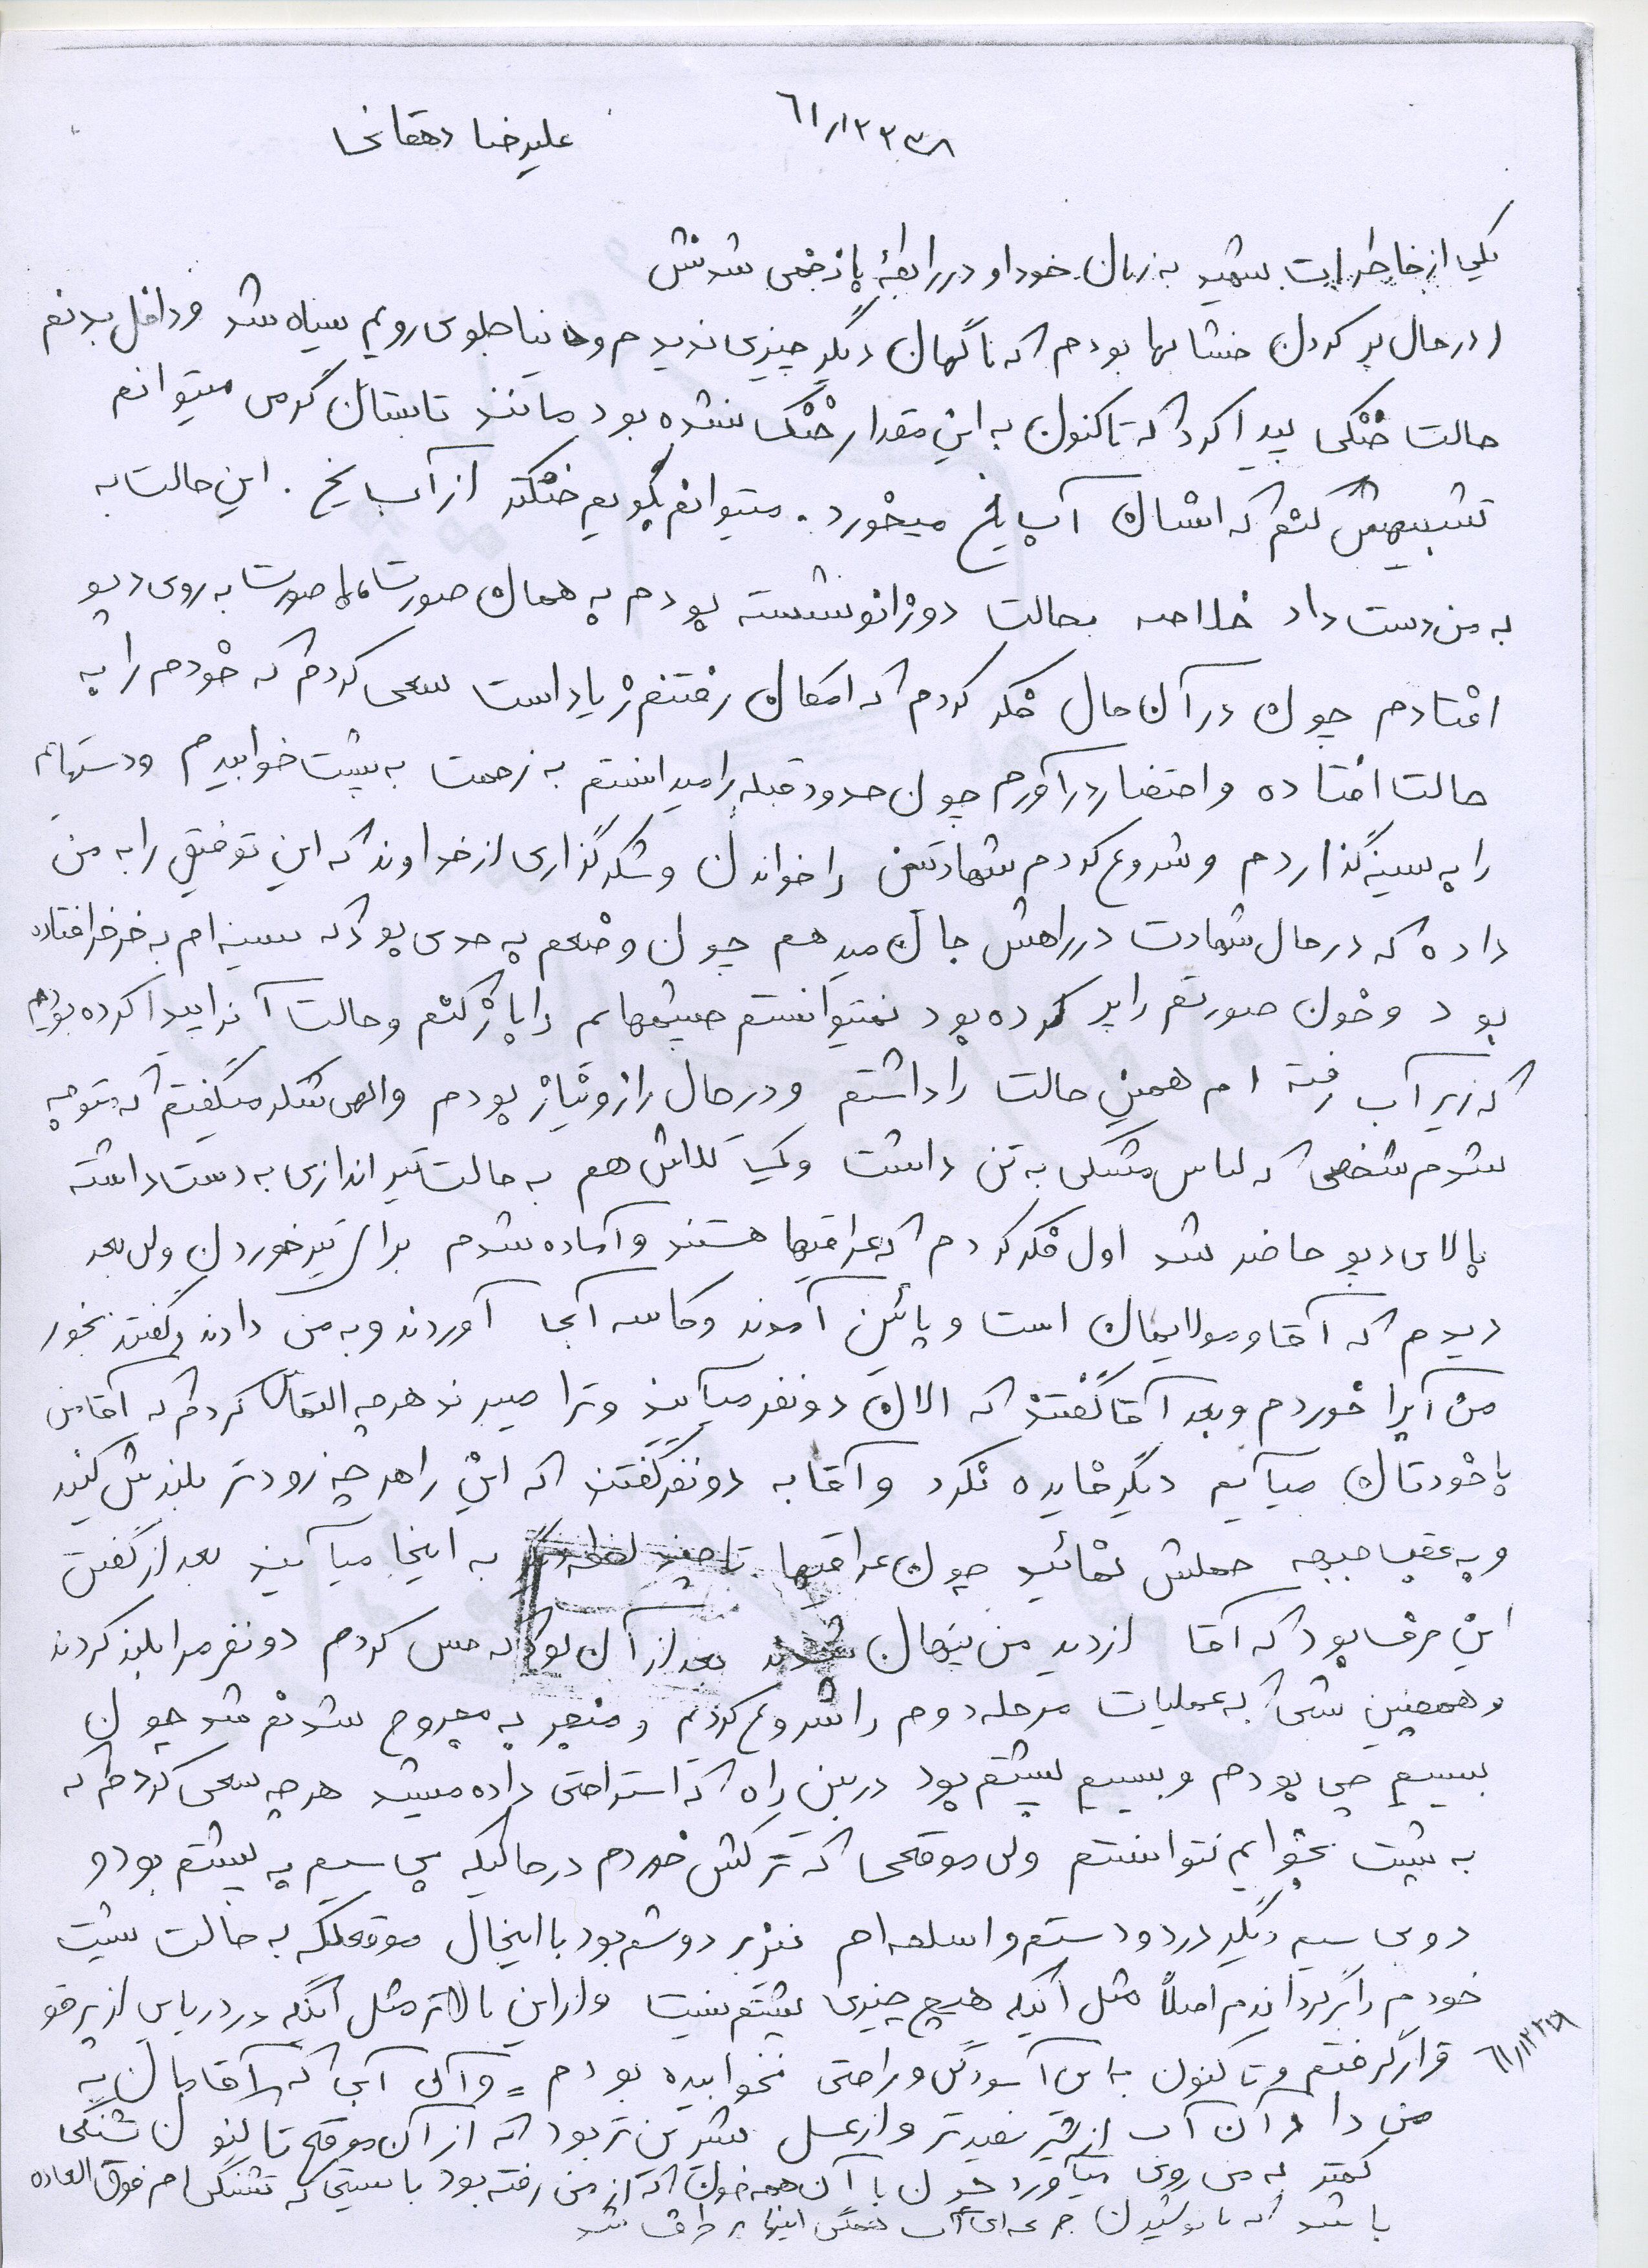 علیرضا دهقانی
یکی از خاطرات شهید به زبان خود او در رابطهٔ با زخمی شدنش
در حال پر کردن خشابها بودم که ناگهان دیگر چیزی ندیدم و دنیا جلوی رویم سیاه شد و داخل بدنم
حالت خنکی پیدا کرد که تاکنون به این مقدار خنک نشده بود مانند تابستان گرمی میتوانم
تشبیهش کنم که انسان آب یخ میخورد. میتوانم بگویم خنکتر از آب یخ. این حالت به
به من دست داد خلاصه بحالت دوزانو نشسته بودم به همان صورت با صورت به روی دپو
افتادم چون در آن حال فکر کردم که امکان رفتنم زیاد است سعی کردم که خودم را به
حالت افتاده و احتضار درآورم چون حدود قبله را میدانستم به زحمت به پشت خوابیدم و دستهایم
را به سینه گذاردم و شروع کردم شهادتین را خواندن و شکرگذاری از خداوند که این توفیق را به من
داده که در حال شهادت در راهش جان میدهم چون وضعم به حدی بود که سینه ام به خرخر افتاده
بود و خون صورتم را پر کرده بود نمیتوانستم چشمهایم را باز کنم و حالت آنرا پیدا کرده بودم
که زیر آب رفته ام همین حالت را داشتم و در حال راز و نیاز بودم و الهی شکر میگفتم که متوجه
شدم شخصی که لباس مشکی به تن داشت و یک کلاش هم به حالت تیراندازی به دست داشته
بالای دپو حاضر شد اول فکر کردم که عراقیها هستند و آماده شدم برای تیر خوردن ولی بعد
دیدم که آقا و مولایمان است و پائین آمدند و کاسه آبی آوردند و به من دادند و گفتند بخور
من آبرا خوردم و بعد آقا گفتند که الان دو نفر میآیند و ترا میبرند هر چه التماس کردم که آقا من
با خودتان میآیم دیگر فایده نکرد و آقا به دو نفر گفتند که این را هر چه زودتر بلندش کنید
و به عقب جبهه حملش نمائید چون عراقیها تا چند لحظه دیگر به اینجا میآیند بعد از گفتن
این حرف بود که آقا از دید من پنهان شدند بعد از آن بود که حس کردم دو نفر مرا بلند کردند
و همچنین شبی که عملیات مرحله دوم را شروع کردیم و منجر به مجروح شدنم شد چون
بیسیم چی بودم و بیسیم پشتم بود در بین راه که استراحتی داده میشد هر چه سعی کردم که
به پشت بخوابم نتوانستم ولی موقعی که ترکش خوردم در حالیکه بی سیم به پشتم بود و
دو بی سیم دیگر در دو دستم و اسلحه ام نیز بر دوشم بود با اینحال موقعیکه به حالت پشت
خودم را برگرداندم اصلاً مثل آنکه هیچ چیزی پشتم نیست و از این بالاتر مثل آنکه در دریایی از پر قو
قرار گرفتم و تاکنون به این آسودگی و راحتی نخوابیده بودم و آن آبی که آقایمان به
من داد آن آب از شیر سفیدتر و از عسل شیرین تر بود که از آن موقع تا کنون تشنگی
کمتر به من روی میآورد چون با آن همه خون که از من رفته بود بایستی که تشنگی ام فوق العاده
باشد که با نوشیدن جرعه ای آب همگی اینها بر طرف شد